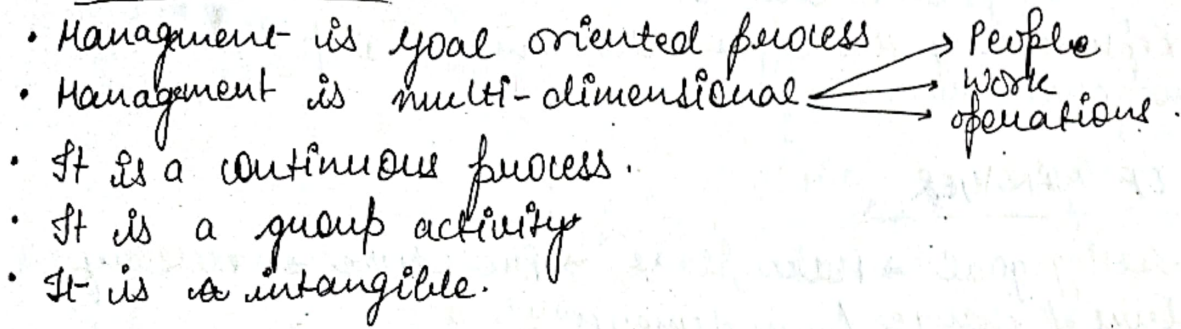 • Management is goal oriented process
• Management is multi-dimensional → People
→ work
→ operations.
• It is a continuous process.
• It is a group activity
• It is a intangible.